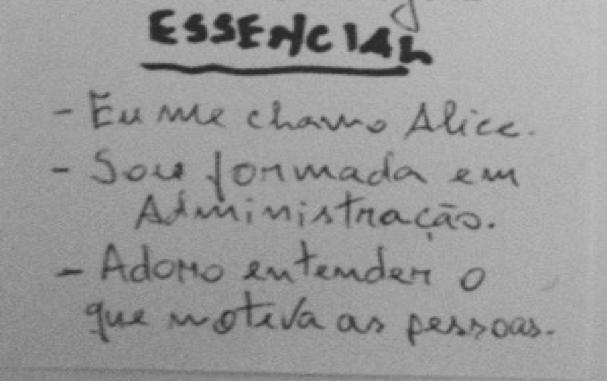 ESSENCIAL
- Eu me chamo Alice.
- Sou formada em
Administração.
- Adoro entender o
que motiva as pessoas.